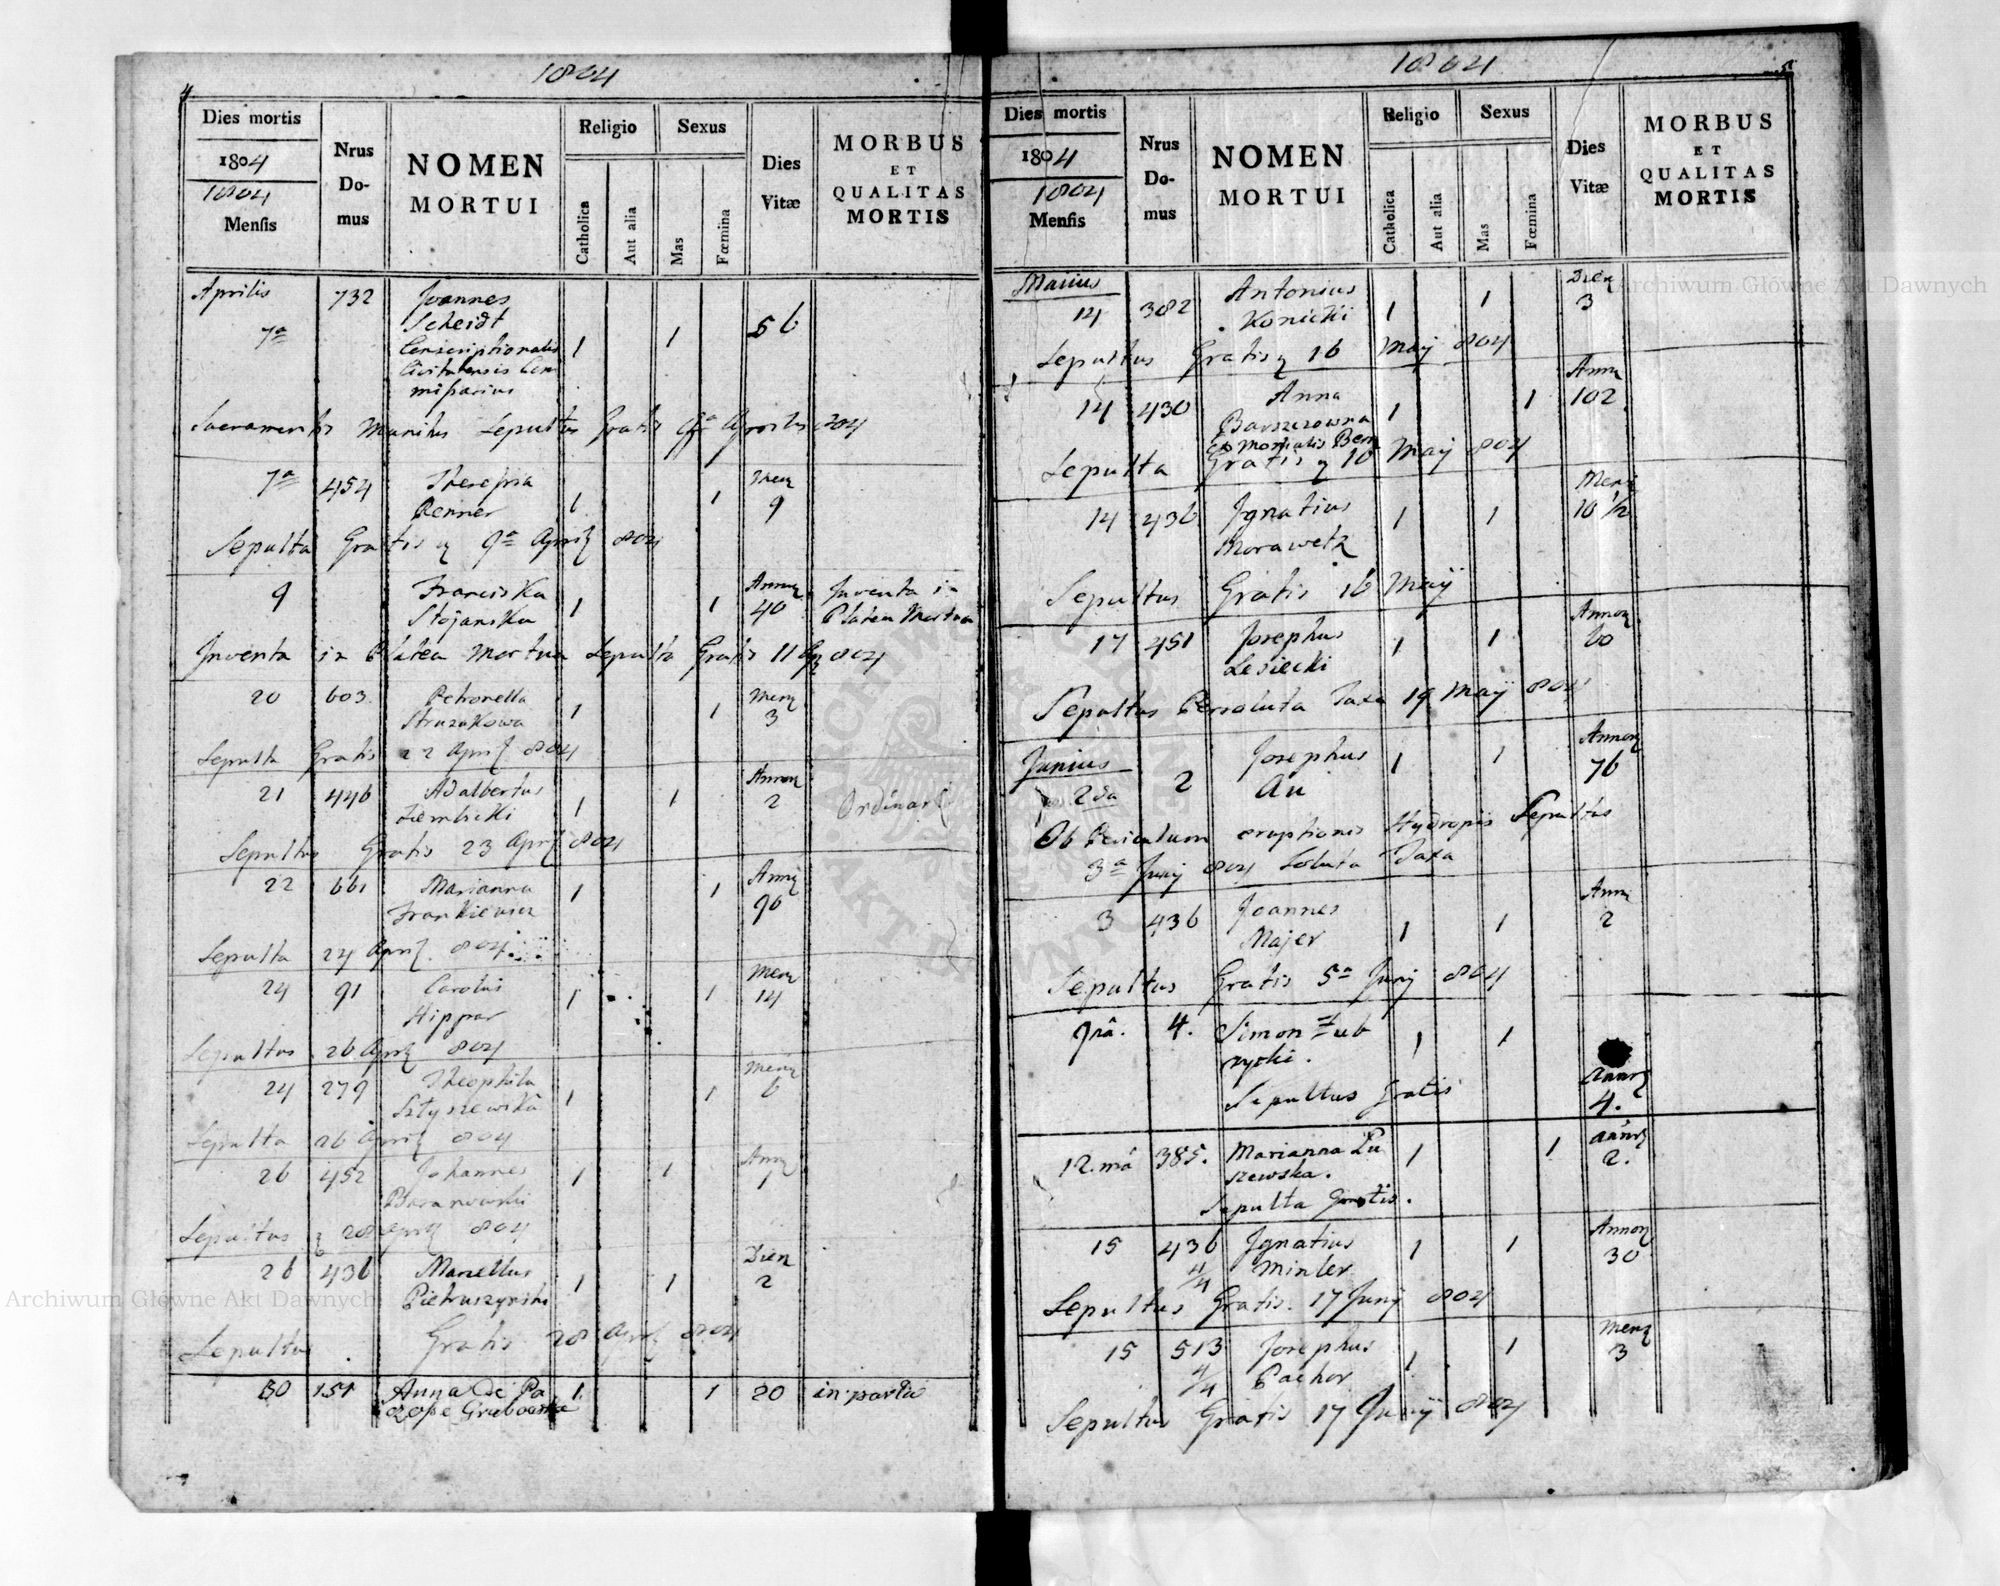 1804
4
Dies mortis
1804
1804
Mensis
Nrus Do-mus
NOMEN MORTUI
Religio
Catholica
Aut alia
Sexus
Mas
Fœmina
Dies Vitæ
MORBUS ET QUALITAS MORTIS
Aprilis 732 Joannes
7a Scheidt 1 1 56
Conscriptionalis
Civitatensis Com
missarius
Sacramentis Munitus Sepultus Gratis 9a Aprilis 804
7a 454 Theresia Menz
Renner 1 1 9
Sepulta Gratis 9a April 804
9 Franciska Annor Inventa in
Stojanska 1 1 40 Platea Mortua
Inventa in Platea Mortua Sepulta Gratis 11 Ap 804
20 603 Petronella Menz
Struzukowa 1 1 3
Sepulta Gratis 22 April 804
21 446 Adalbertus Annor
Ziembicki 1 1 2 Ordinari
Sepultus Gratis 23 April 804
22 661 Marianna 1 1 Annor
Frankiewicz 96
Sepulta 24 April 804
24 91 Carolus 1 1 Menz
Hippar 14
Sepultus 26 April 804
24 279 Theophila Menz
Szłyszewska 1 1 6
Sepulta 26 April 804
26 452 Johannes 1 1 Anni
Baranowski 1
Sepultus 28 April 804
26 436 Marcellus Dier
Pietruszynski 1 1 2
Sepultus Gratis 28 April 804
30 151 Anna de Pa 1 1 20 in partu
czope Grabowska
1804
5
Dies mortis
1804
1804
Mensis
Nrus Do-mus
NOMEN MORTUI
Religio
Catholica
Aut alia
Sexus
Mas
Fœmina
Dies Vitæ
MORBUS ET QUALITAS MORTIS
Maius Antonius Dier
14 382 Konicki 1 1 3
Sepultus Gratis 16 Maij 804
Anna Annor
14 430 Barszczowna 1 1 102
Ex Monialis Bern
Sepulta Gratis 16 Maij 804
14 436 Ignatius 1 1 Menz
Morawetz 10 1/2
Sepultus Gratis 16 Maij
17 451 Josephus 1 1 Annor
Lesiecki 60
Sepultus Persoluta Taxa 19 Maij 804
Junius Josephus 1 1 Annor
2da 2 Au 76
Ob Periculum eruptionis Hydropis Sepultus
3a Junij 804 Soluta Taxa
3 436 Joannes Annor
Majer 1 1 2
Sepultus Gratis 5a Junij 804
9na. 4. Simon Zub
rzycki. 1 1
Sepultus Gratis Annor
4.
12.ma 385. Marianna Lu 1 1 Annor
szewska. 2.
Sepulta Gratis.
15 436 Ignatius 1 1 Annor
4/4 Minter 30
Sepultus Gratis. 17 Junij 804
15 513 Josephus 1 1 Menz
4/4 Pachor 3
Sepultus Gratis 17 Junij 804
Archiwum Główne Akt Dawnych
Archiwum Główne Akt Dawnych